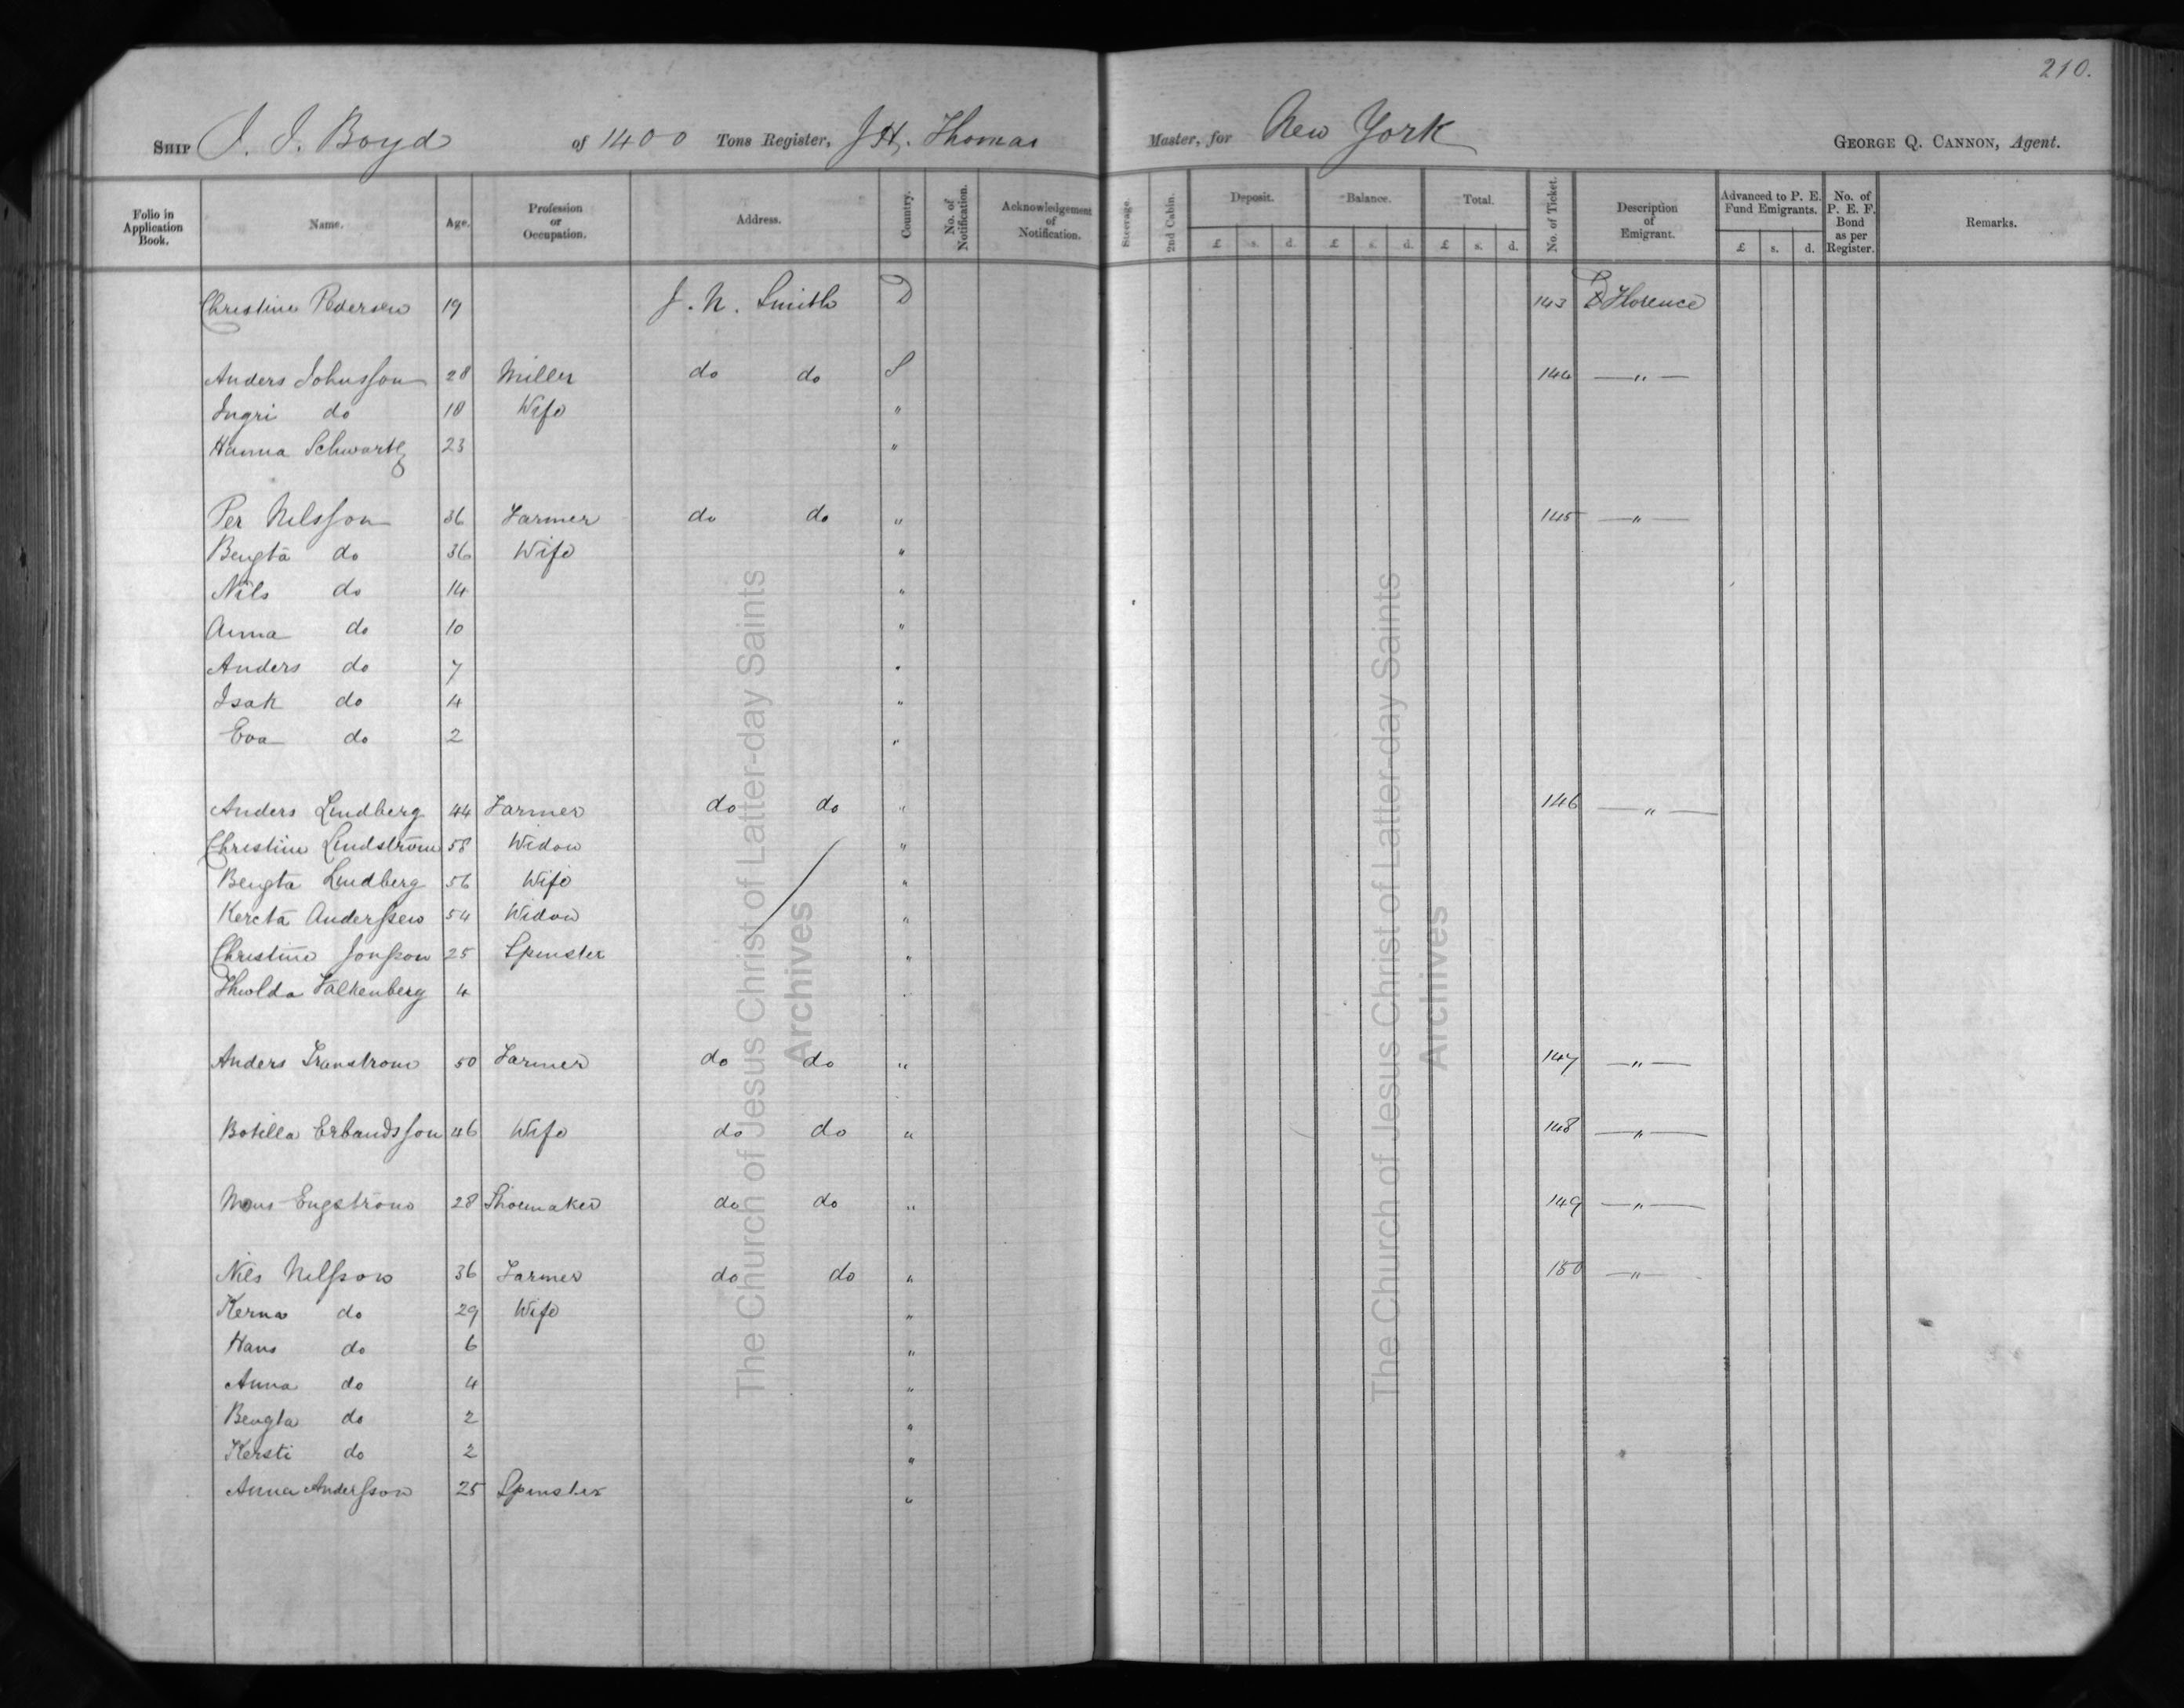 210.
Ship J. J. Boyd of 1400 Tons Register, J H. Thomas Master, for New York George Q. Cannon, Agent.
Folio in Application Book. Name. Age. Profession or Occupation. Address. Country. No. of Notification. Acknowledgement of Notification. Steerage. 2nd Cabin. Deposit. Balance. Total. No. of Ticket. Description of Emigrant. Advanced to P. E. Fund Emigrants. No. of P. E. F. Bond as per Register. Remarks.
£ s. d. £ s. d. £ s. d. £ s. d.
Christine Pedersen 19 J. N. Smith D 143 Florence
Anders Johnsson 28 Miller do do S 144 — " —
Ingri do 18 Wife "
Hanna Schwartz 23 "
Per Nilsson 36 Farmer do do " 145 — " —
Bengta do 36 Wife "
Nils do 14 "
Anna do 10 "
Anders do 7 "
Isak do 4 "
Eva do 2 "
Anders Lindberg 44 Farmer do do " 146 — " —
Christine Lindström 58 Widow "
Bengta Lindberg 56 Wife "
Kersta Anderssen 54 Widow "
Christine Jonsson 25 Spinster "
Falkenberg 4 "
Anders Transtrom 50 Farmer do do " 147 — " —
Botilla Erlandsson 46 Wife do do " 148 — " —
Mons Engstrom 28 Shoemaker do do " 149 — " —
Nils Nilsson 36 Farmer do do " 150 — " —
Kerna do 29 Wife "
Hans do 6 "
Anna do 4 "
Bengta do 2 "
Kersti do 2 "
Anna Andersson 25 Spinster "
The Church of Jesus Christ of Latter-day Saints
Archives
The Church of Jesus Christ of Latter-day Saints
Archives